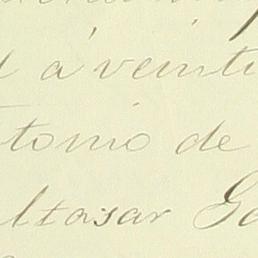 á veinti
tonio de
ltasar Go